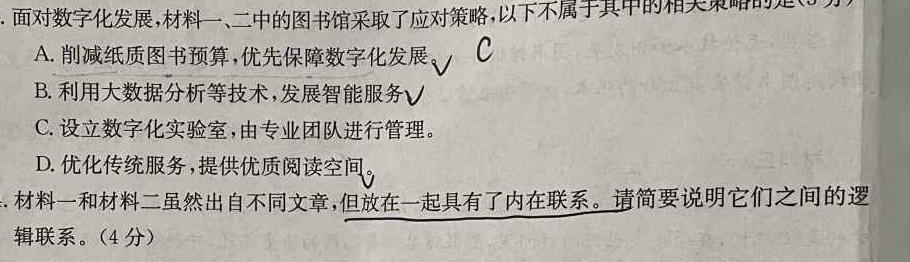 . 面对数字化发展,材料一、二中的图书馆采取了应对策略,以下不属于其中的相关策略的是(3 分)
A. 削减纸质图书预算,优先保障数字化发展。 C
B. 利用大数据分析等技术,发展智能服务
C. 设立数字化实验室,由专业团队进行管理。
D. 优化传统服务,提供优质阅读空间。
. 材料一和材料二虽然出自不同文章,但放在一起具有了内在联系。请简要说明它们之间的逻
辑联系。(4 分)